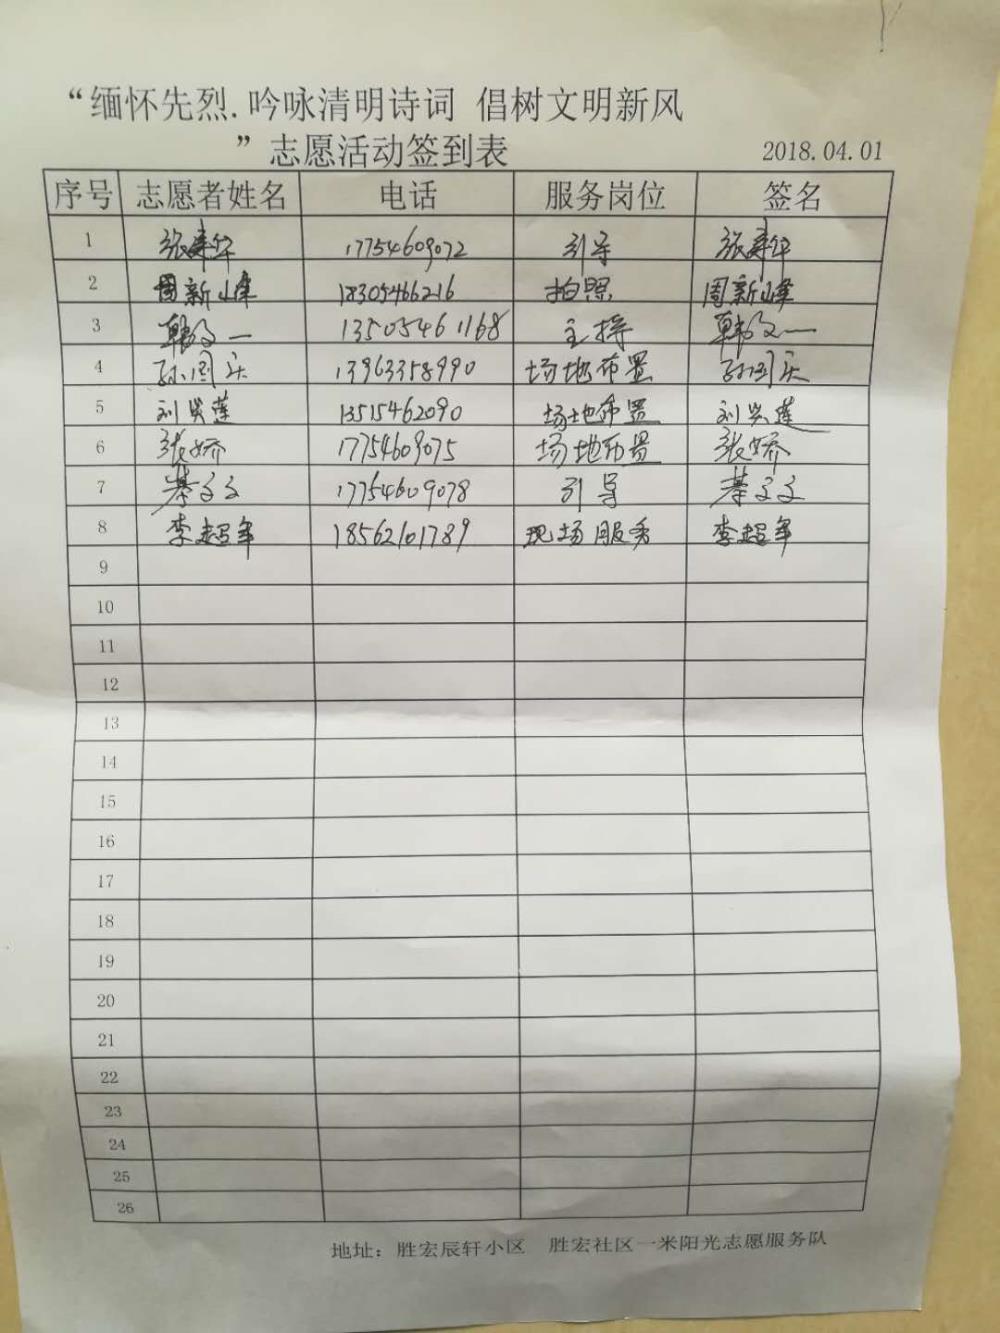 “缅怀先烈.吟咏清明诗词 倡树文明新风
”志愿活动签到表 2018.04.01
序号 志愿者姓名 电话 服务岗位 签名
1 张寿华 17754609072 引导 张寿华
2 周新峰 18305466216 拍照 周新峰
3 韩文一 13505461168 主持 韩文一
4 孙国庆 13963358990 场地布置 孙国庆
5 刘兴莲 13515462090 场地布置 刘兴莲
6 张娇 17754609075 场地布置 张娇
7 綦文文 17754609078 引导 綦文文
8 李超军 18562101789 现场服务 李超军
9
10
11
12
13
14
15
16
17
18
19
20
21
22
23
24
25
26
地址：胜宏辰轩小区 胜宏社区一米阳光志愿服务队